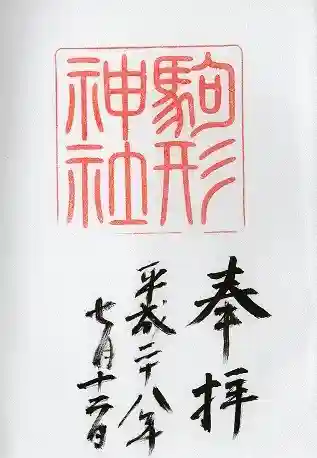 駒形
神社
奉拝
平成二十八年
七月十二日